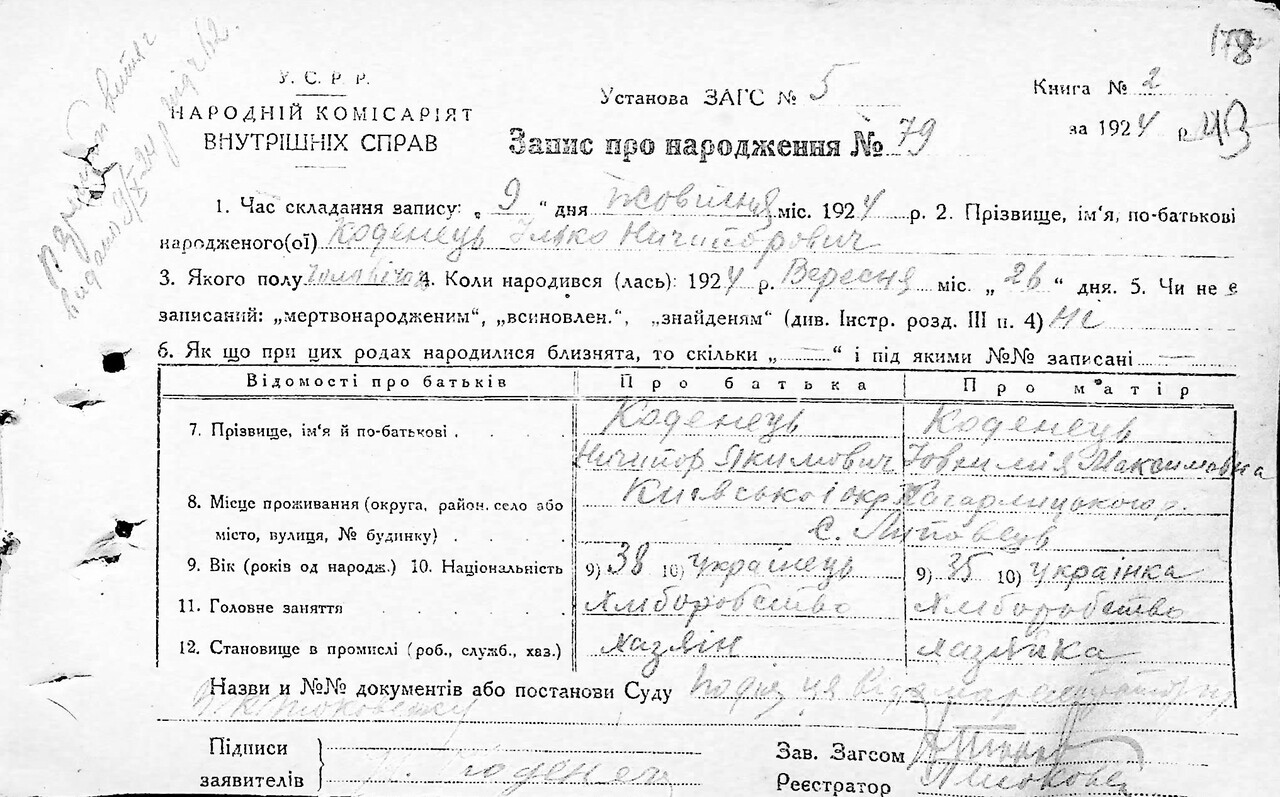 178
У. С. Р. Р.
НАРОДНІЙ КОМІСАРІЯТ
ВНУТРІШНІХ СПРАВ
Установа ЗАГС № 5
Запис про народження № 79
Книга № 2
за 1924 р.
43
1. Час складання запису: „ 9 “ дня жовтня міс. 1924 р. 2. Прізвище, ім'я, по-батькові
народженого(ої) Коденець Ілько Ничипорович
3. Якого полу 4. Коли народився (лась): 1924 р. Вересня міс. „ 26 “ дня. 5. Чи не є
записаний: „мертвонародженим“, „всиновлен.“, „знайденям“ (див. Інстр. розд. III п. 4) Ні
6. Як що при цих родах народилися близнята, то скільки „ — “ і під якими №№ записані —
Відомості про батьків Про батька Про матір
7. Прізвище, ім'я й по-батькові . . . . Коденець Коденець
Ничипор Якимович Максимовна
8. Місце проживання (округа, район, село або Київської окр Кагарлицького р.
місто, вулиця, № будинку) . . . . с. Липовець
9. Вік (років од народж.) 10. Національність 9) 38 10) українець 9) 35 10) українка
11. Головне заняття . . . . . Хліборобство Хліборобство
12. Становище в промислі (роб., служб., хаз.) хазяїн хазяйка
Назви и №№ документів або постанови Суду Подія ця
Підписи
заявителів
Коденец
Зав. Загсом
Реєстратор